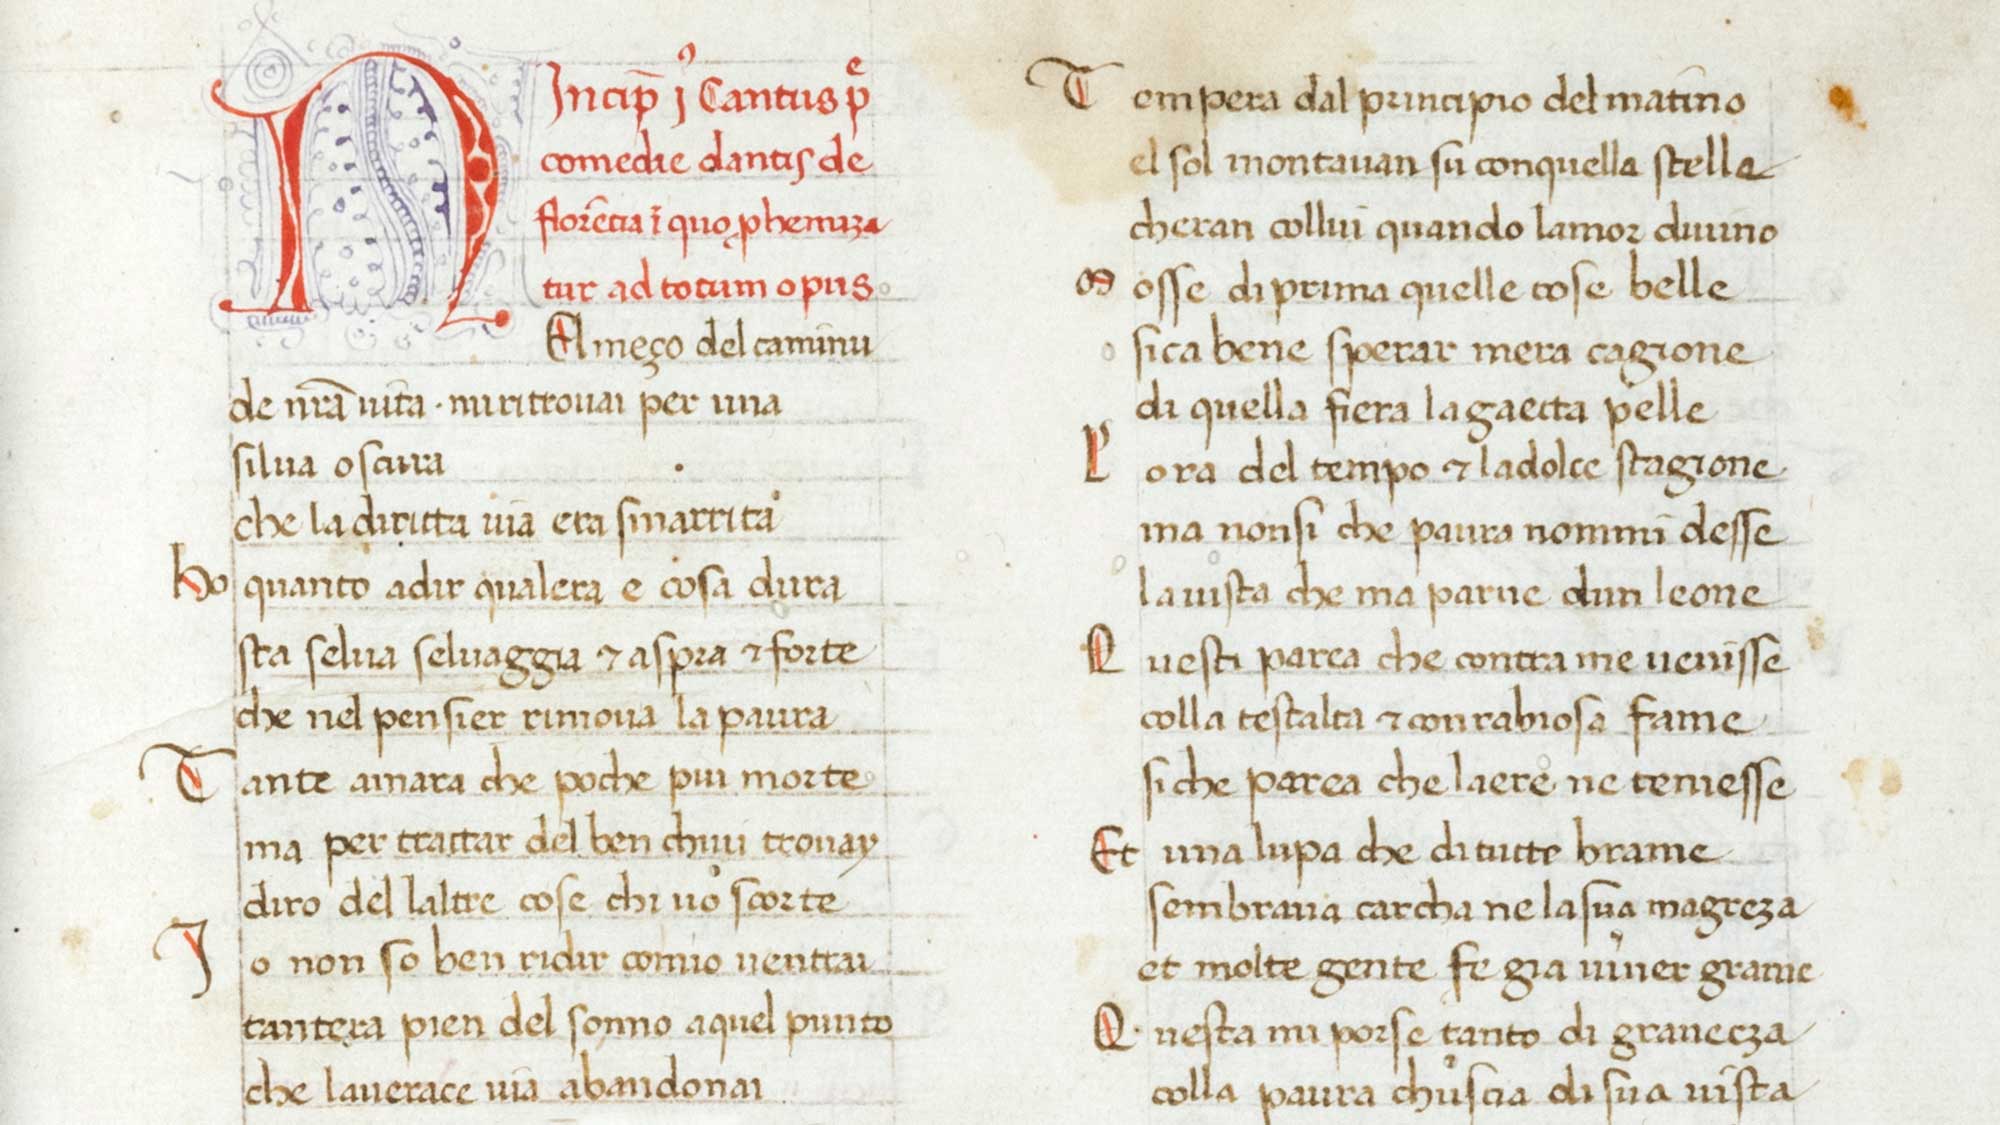 N
Incip̄ j᾽ Cantus pͤ
comedie dantis de
florēcia ī quo prhemiza
tur ad totum opus
El meço del caminu
de nr̄a uita · mi ritrouai per una
silua oscura
che la diritta uia era smarrita
ho quanto adir qualera e cosa dura
sta selua seluaggia ⁊ aspra ⁊ forte
che nel pensier rimoua la paura
Tante amara che poche piu morte
ma per trattar del ben chiui trouay
diro del laltre cose chi uo scorte
Io non so ben ridir comio uentrai
tantera pien del sonno aquel punto
che lauerace uia abandonai
Tempera dal principio del matino
el sol montauan su conquella stella
cheran collui quando lamor diuino
Mosse di prima quelle cose belle
sica bene sperar mera cagione
di quella fiera lagaetta pelle
Lora del tempo ⁊ ladolce stagione
ma nonsi che paura nommi desse
lauista che ma parue dun leone
Questi parea che contra me uenisse
colla testalta ⁊ conrabiosa fame
siche parea che laere ne temesse
Et una lupa che ditutte brame
sembraua carcha ne lasua magreza
et molte gente fe gia uiuer grame
Questa mi porse tanto di grauecza
colla paura chuscia di sua uista